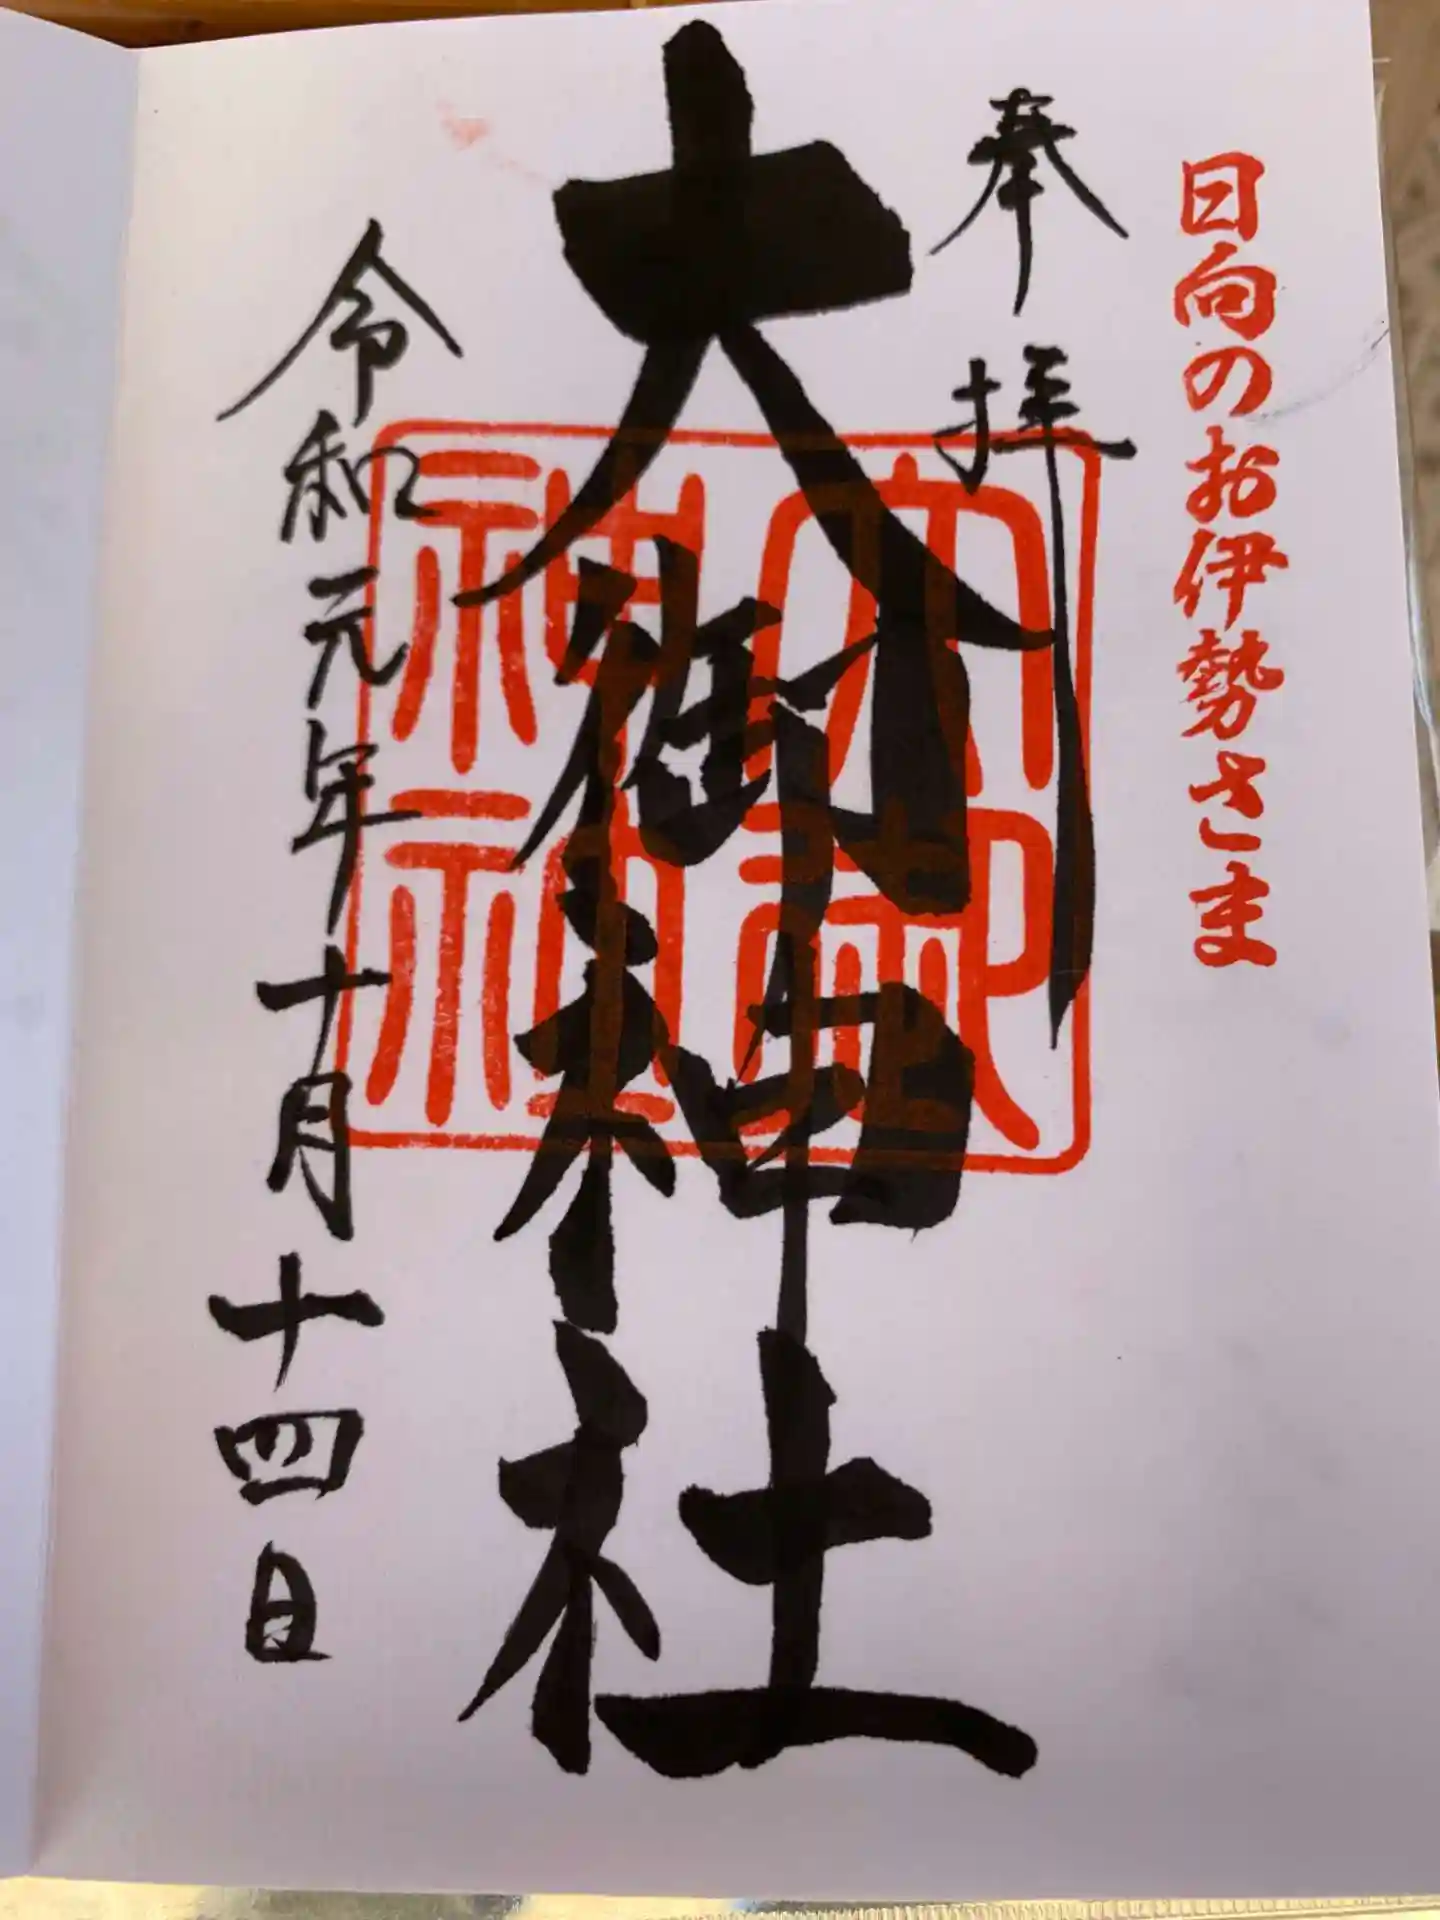 日向のお伊勢さま
奉拝
大御神社
令和元年十月十四日